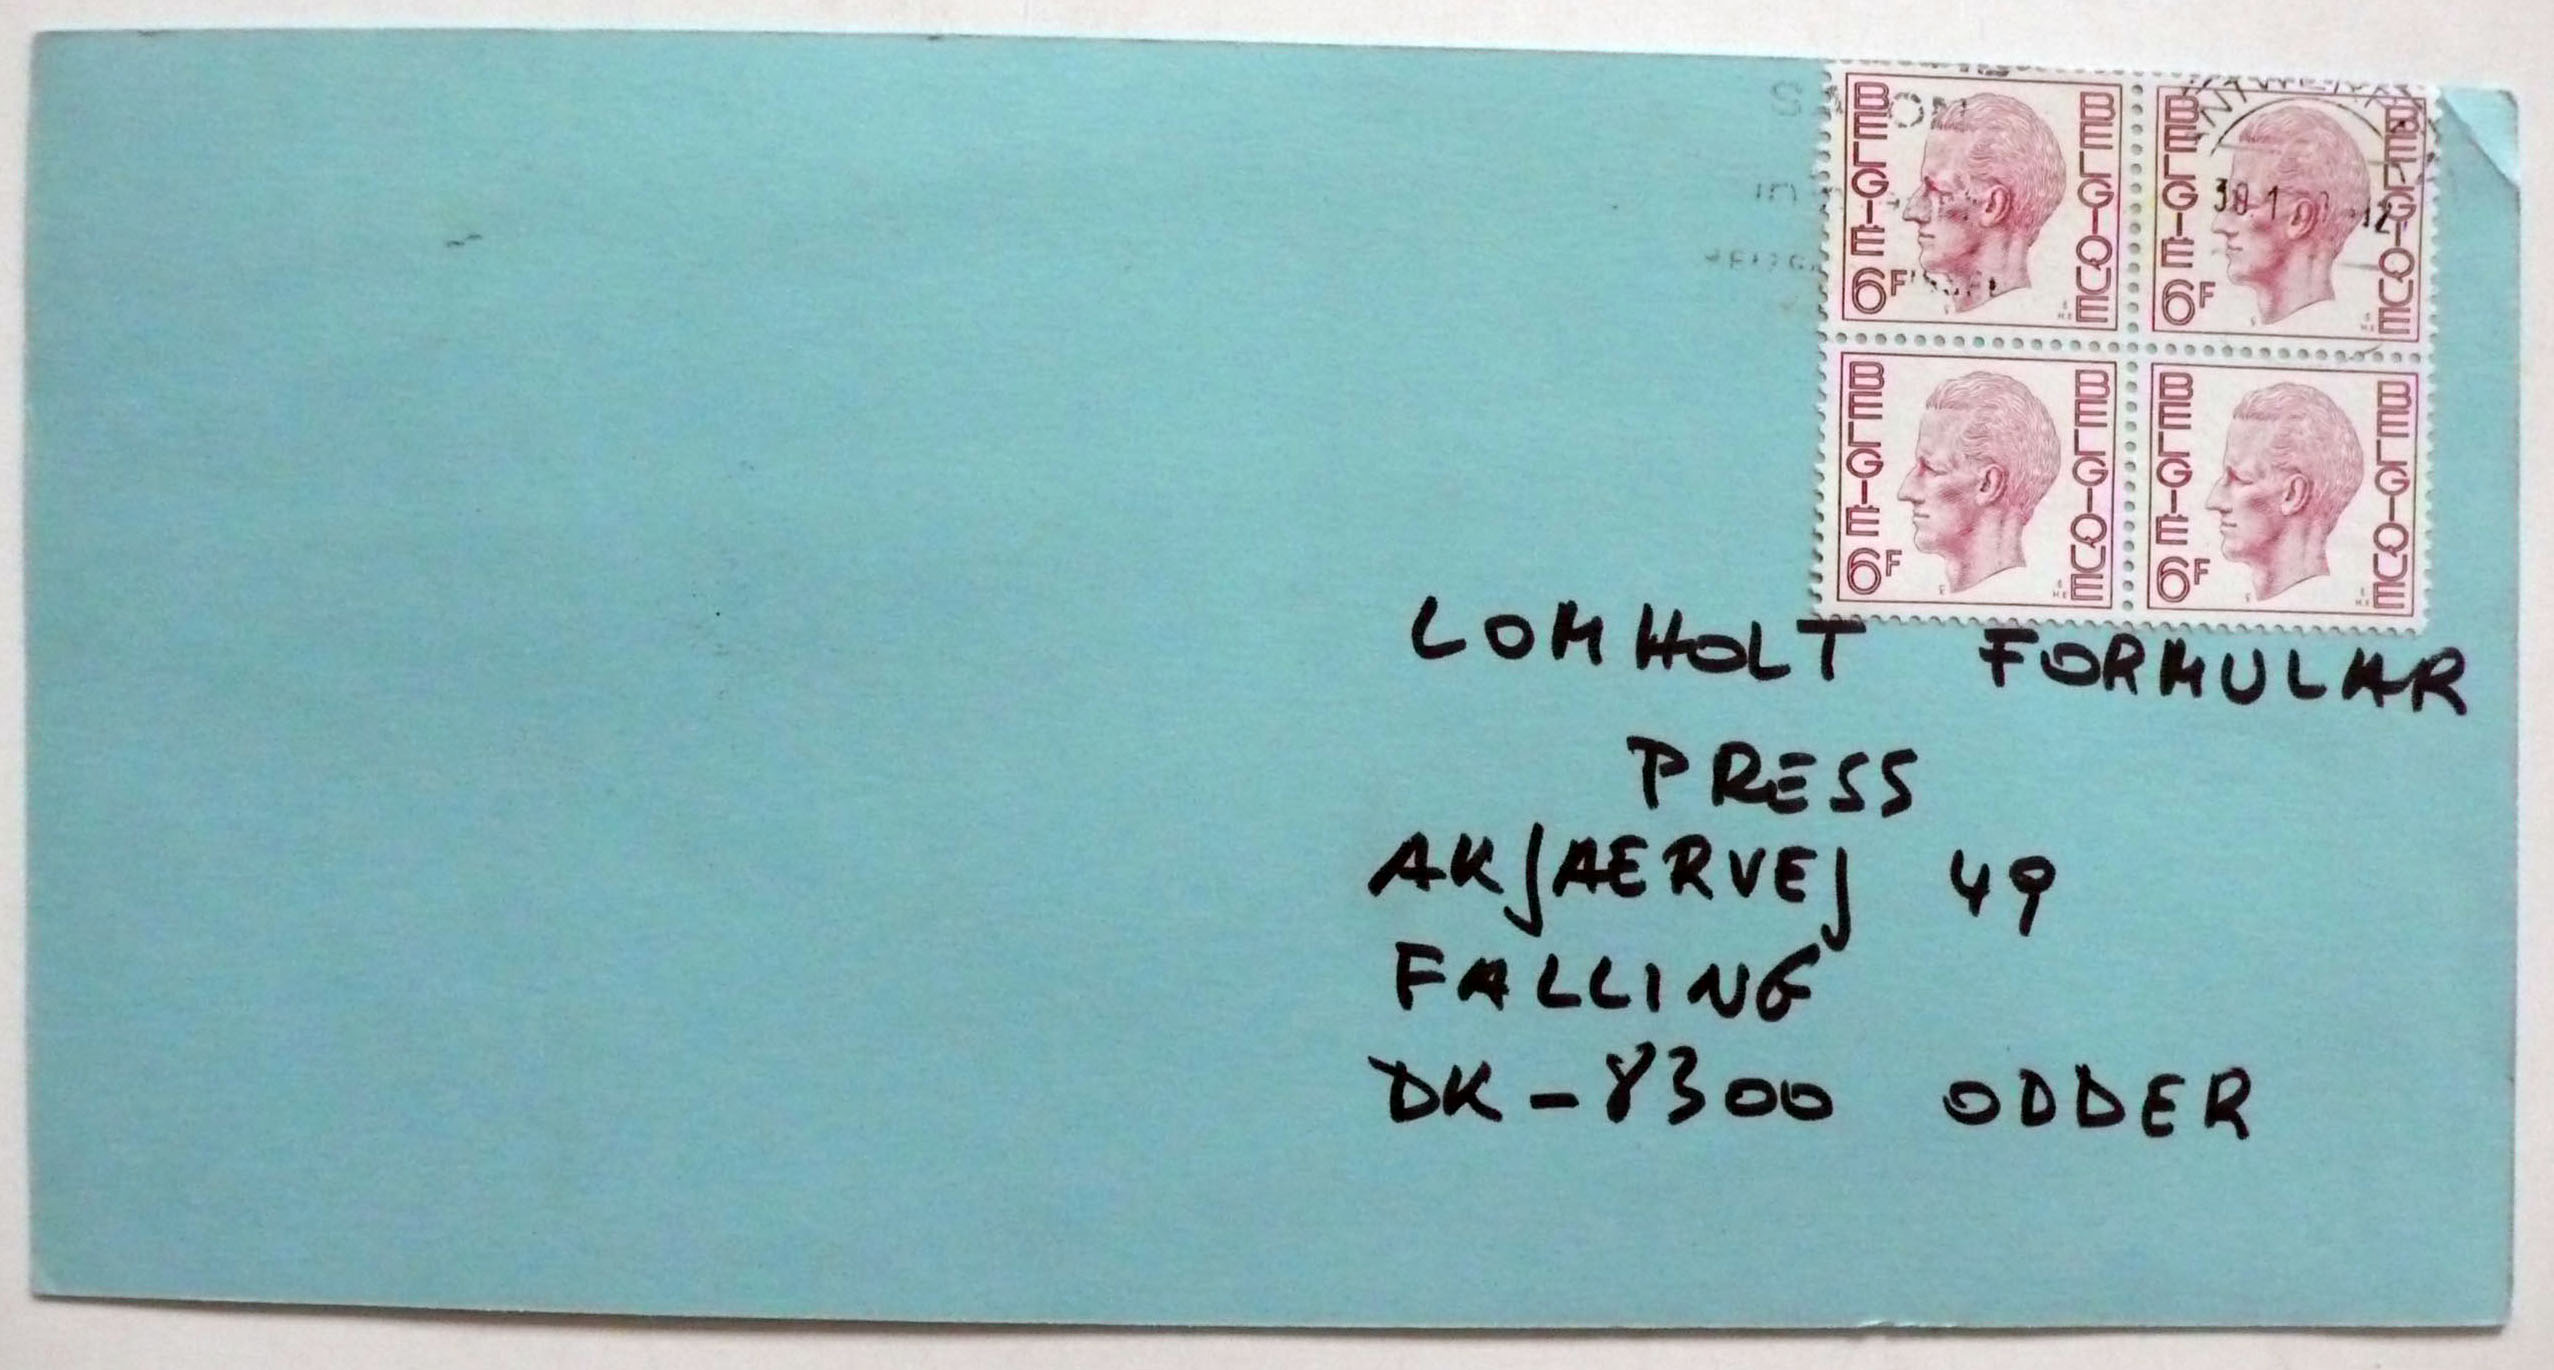 BELGIË BELGIQUE 6F
BELGIË BELGIQUE 6F
BELGIË BELGIQUE 6F
BELGIË BELGIQUE 6F
LOMHOLT FORMULAR
PRESS
AKJAERVEJ 49
FALLING
DK-8300 ODDER